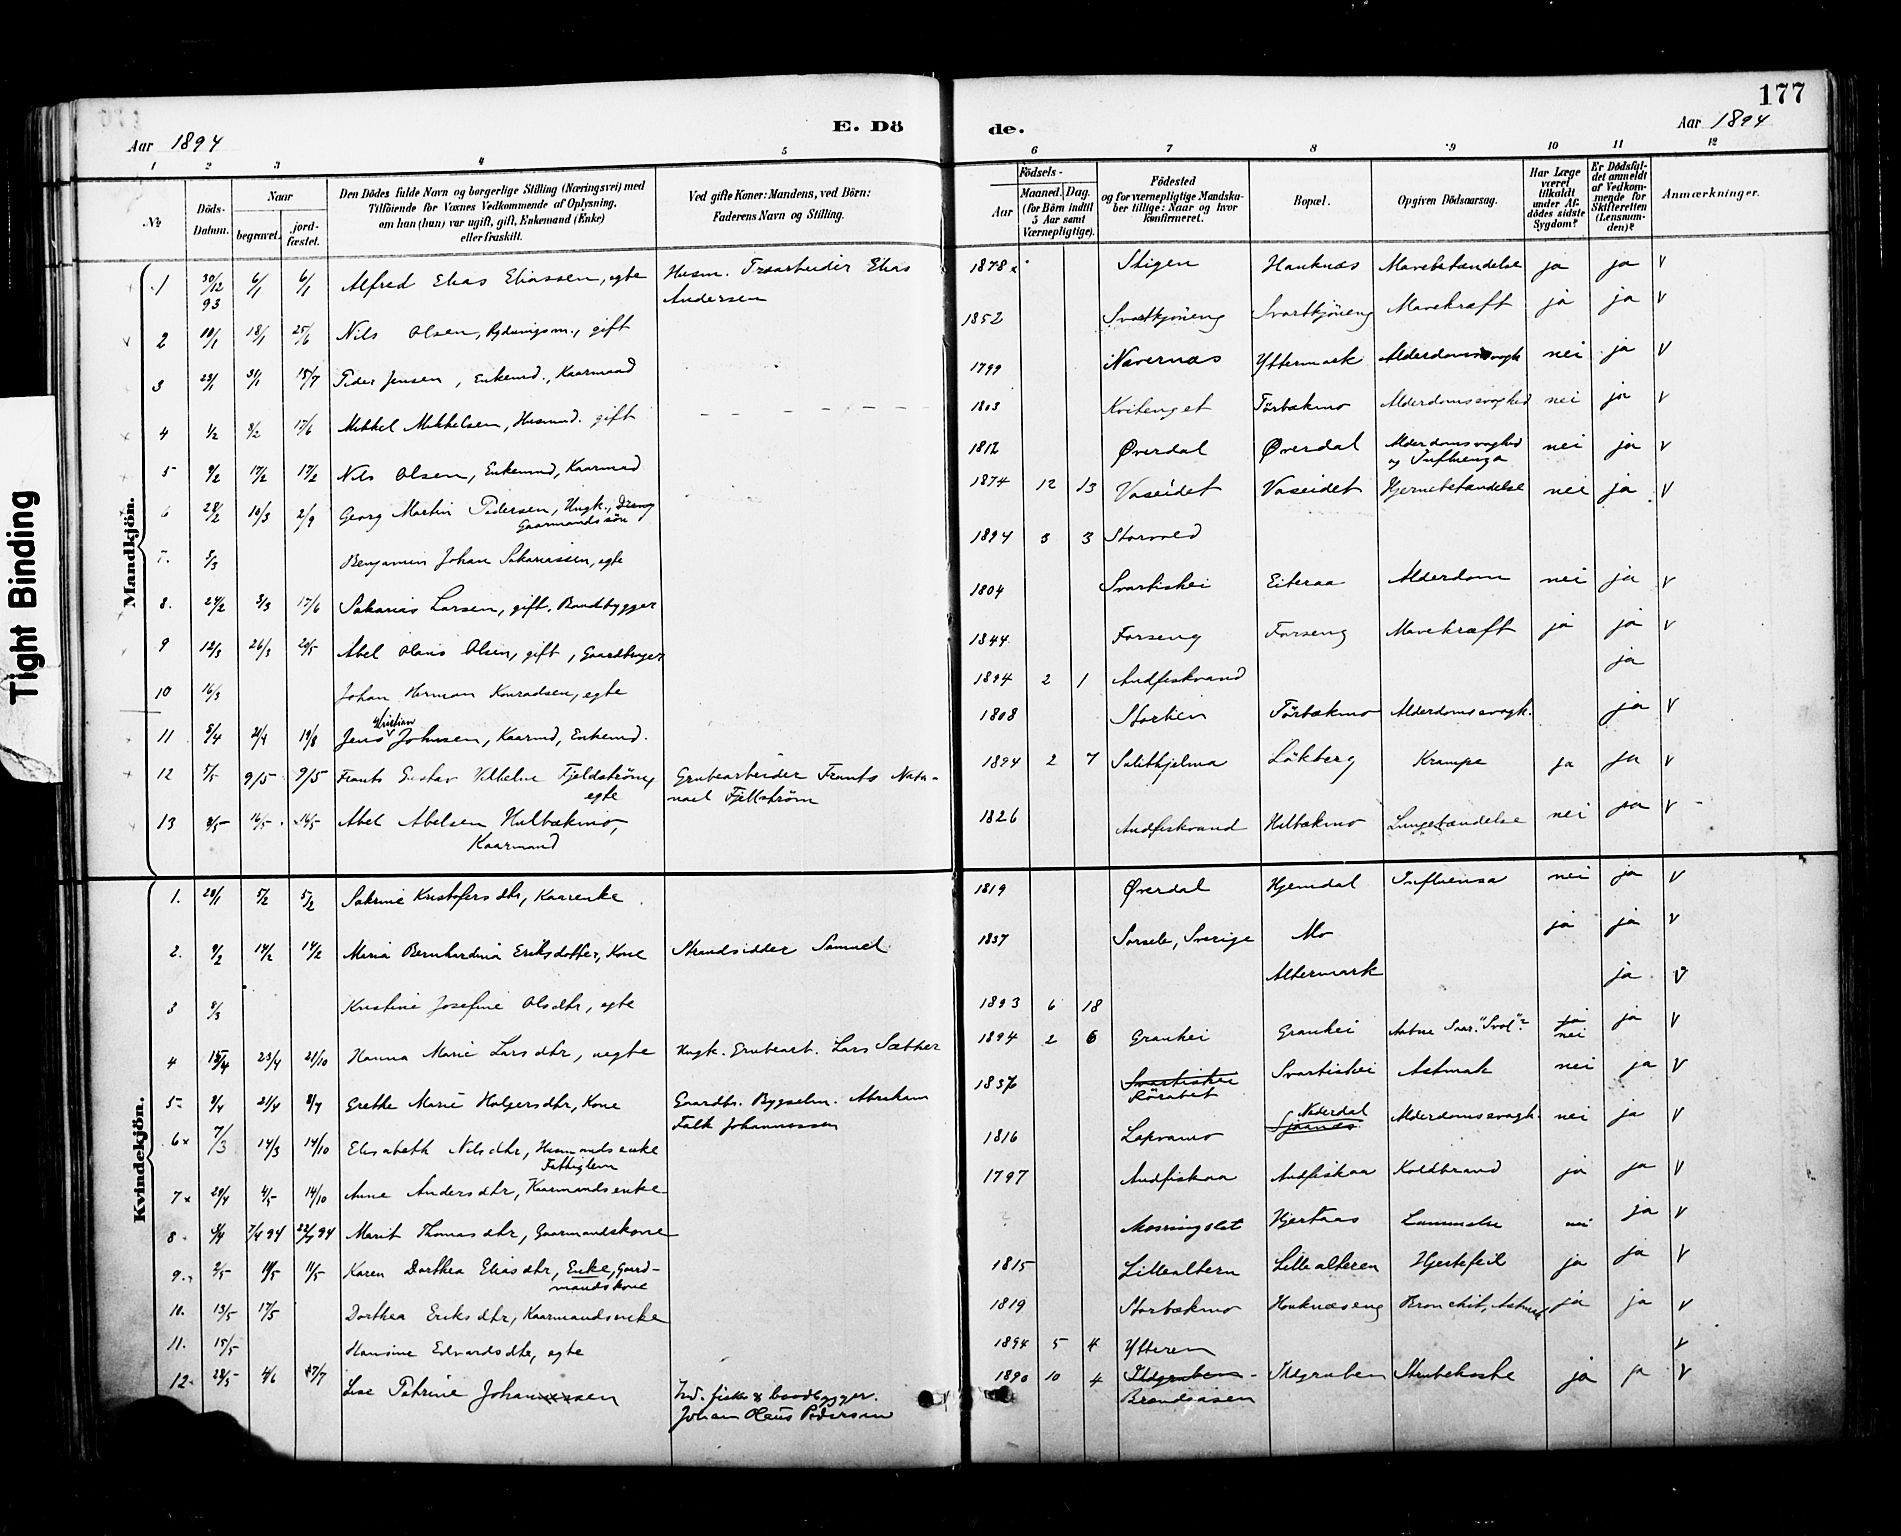 177
E. Dö
de.
Aar 1894
Aar 1894
1 2 3 4 5 6 7 8 9 10 11 12
No
Döds-Datum.
Naar
begravet.
jord-fæstet.
Den Dödes fulde Navn og borgerlige Stilling (Næringsvei) med
Tilföiende for Voxnes Vedkommende af Oplysning,
om han (hun) var ugift, gift, Enkemand (Enke)
eller fraskilt.
Ved gifte Koner: Mandens, ved Börn:
Faderens Navn og Stilling.
Födsels-
Aar
Maaned. Dag.
(for Börn indtil
5 Aar samt
Værnepligtige).
Födested
og for værnepligtige Mandsku-
ber tillige: Naar og hvor
konfirmeret.
Bopæl.
Opgiven Dödsaarsag.
Har Læge
været
tilkaldt
under Af-
dödes sidste
Sygdom?
Er Dödsful-
det anmeldt
af Vedkom-
mende for
Skifteretten
(Lensman-
den)?
Anmærkninger.
Mandkjön.
1 30/12 93 6/1 6/1 Alfred Elias Eliassen, egte Husm. Elias Andersen 1878 Stigen Hauknæs Mavebetændelse ja ja V
2 10/1 18/1 25/6 Nils Olsen, Rydningsm., gift 1852 Svartkjöneng Svartkjöneng Mavekræft ja ja V
3 23/1 31/1 15/7 Peder Jensen, Enkemd., Kaarmand 1799 Nævernæs Yttermark nei ja V
4 1/2 8/2 17/6 Mikkel Mikkelsen, Husmd. gift 1803 Kvitenget Törbækmo Alderdomssvaghed nei ja V
5 9/2 17/2 17/2 Nils Olsen, Enkemd, Kaarmd 1812 Øverdal Øverdal Alderdomssvaghed og Influenza nei ja V
6 28/2 10/3 2/9 Georg Martin Pedersen, Ungk., Dreng Gaarmandssön 1874 12 13 Vaseidet Vaseidet Hjernebetændelse nei ja V
7. 5/3 Benjamin Johan Sakariassen, egte 1894 3 3 Storvold
8. 24/2 3/3 17/6 Sakarias Larsen, gift, Baadbygger 1804 Svartishei Eiteraa Alderdom nei ja V
9 12/3 26/3 20/5 Abel Olaus Olsen, gift, Gaardbruger 1844 Forseng Forseng Mavekræft ja ja V
10 16/3 Johan Herman Konradsen, egte 1894 2 1 Andfiskvand ja
11 8/4 21/4 19/8 Jens Kristian Johnsen, Kaarmd, Enkemd. 1808 Storlien Törbækmo Alderdomssvagh. ja V
12 5/5 9/5 9/5 Frants Gustav Vilhelm Fjeldström, egte Grubearbeider Frants Nata-
nael Fjellström 1894 2 7 Sulitjelma Lökberg Krampe ja ja V
13 8/5 16/5 16/5 Abel Abelsen Hulbækmo,
Kaarmand 1826 Andfiskvand Hulbækmo Lungebetændelse nei ja V
Kvindekjön.
1. 28/1 5/2 5/2 Katrine Kristofersdtr, Kaarenke 1819 Øverdal Hjemdal Influensa nei ja V
2. 9/2 14/2 14/2 Maria Bernhardina Eriksdotter, Kone Strandsidder Samuel 1837 Sorsele, Sverige Mo ja ja V
3 8/3 Kristine Josefine Olsdtr, egte 1893 6 18 Altermark ja V
4 15/4 23/4 21/10 Hanna Marie Larsdtr, uegte Ungk. Grubearb. Lars Sæther 1894 2 6 Granhei Granhei ja nei ja V
5 9/4 21/4 8/7 Grethe Marie Holgersdtr, Kone Gaardbr. Bygselm. Abraham
Falk Johannessen 1836 Svartishei
Rörabet Svartishei Astmak nei ja V
6 7/3 14/3 14/10 Elisabeth Nilsdtr, Husmandsenke
Fattiglem 1816 Lapramo Nederdal Alderdomssvagh. nei ja V
7 29/4 4/5 14/10 Anne Andersdtr, Kaarmandsenke 1797 Andfiskaa Andfiskaa Koldbrand ja ja V
8 4/4 7/4 94 Marit Thomasdtr, Gaarmandskone Hjertaas nei ja V
9. 2/5 11/5 11/5 Karen Dorthea Eliasdtr, Enke, Gaard-
mandskone 1815 Lillealtern Lillealteren Hjertefeil ja ja V
10. 13/5 17/5 Dorthea Eriksdtr, Kaarmandsenke 1819 Storbækmo Hauknæseng Bronchit, Astma ja ja V
11. 15/5 Hansine Edvardsdtr, egte 1894 5 4 Ytteren V
12 28/5 4/6 17/7 Lise Katrine Johannessen Ind. fisker & baadbygger
Johan Olaus Pedersen 1890 10 4 Ildgruben
Brændaasen Ildgruben Strubehoste ja ja V
Tight Binding